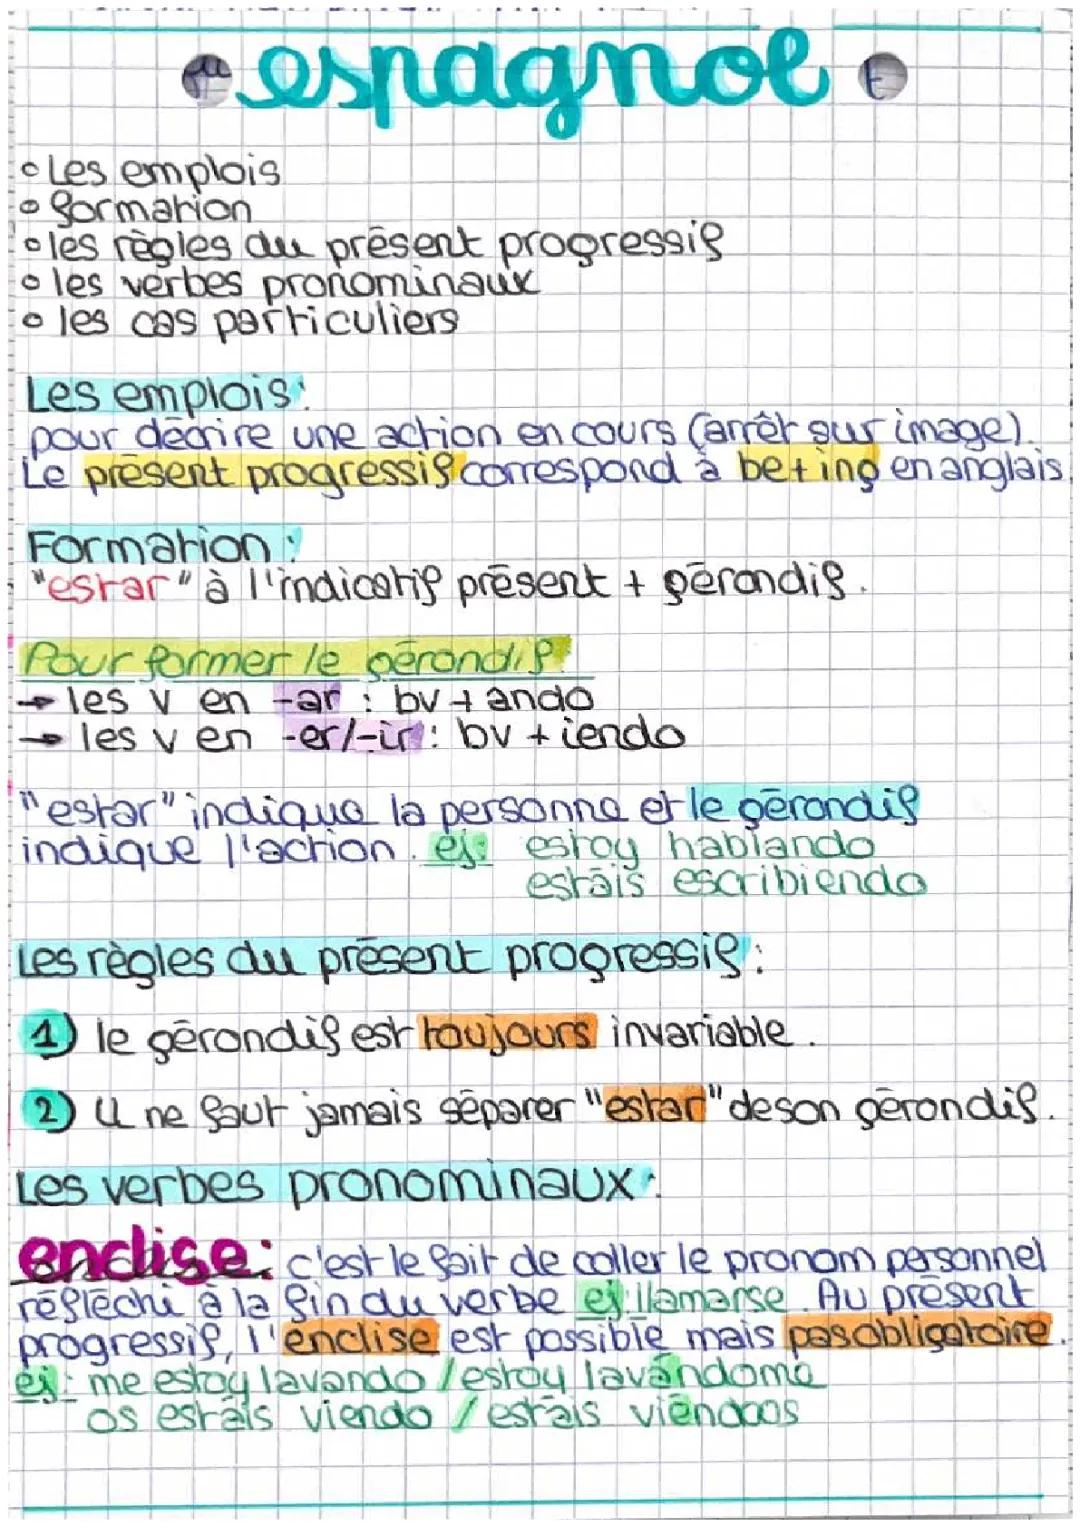 espagnol
• Les emplois
• formation
• les règles du présent progressif
• les verbes pronominaux
• les cas particuliers
Les emplois:
pour décrire une action en cours (arrêt sur image).
Le présent progressif correspond à be+ing en anglais
Formation :
"estar" à l'indicatif présent + gérondif.
Pour former le gérondif:
→ les v en -ar : bv + ando
→ les v en -er/-ir : bv + iendo
"estar" indique la personne et le gérondif
indique l'action. ej: estoy hablando
estáis escribiendo
Les règles du présent progressif :
1) le gérondif est toujours invariable.
2) il ne faut jamais séparer "estar" de son gérondif.
Les verbes pronominaux:
enclise: c'est le fait de coller le pronom personnel
réfléchi à la fin du verbe ej: llamarse. Au présent
progressif, l'enclise est possible mais pas obligatoire.
ej: me estoy lavando / estoy lavándome
os estáis viendo / estáis viéndoos